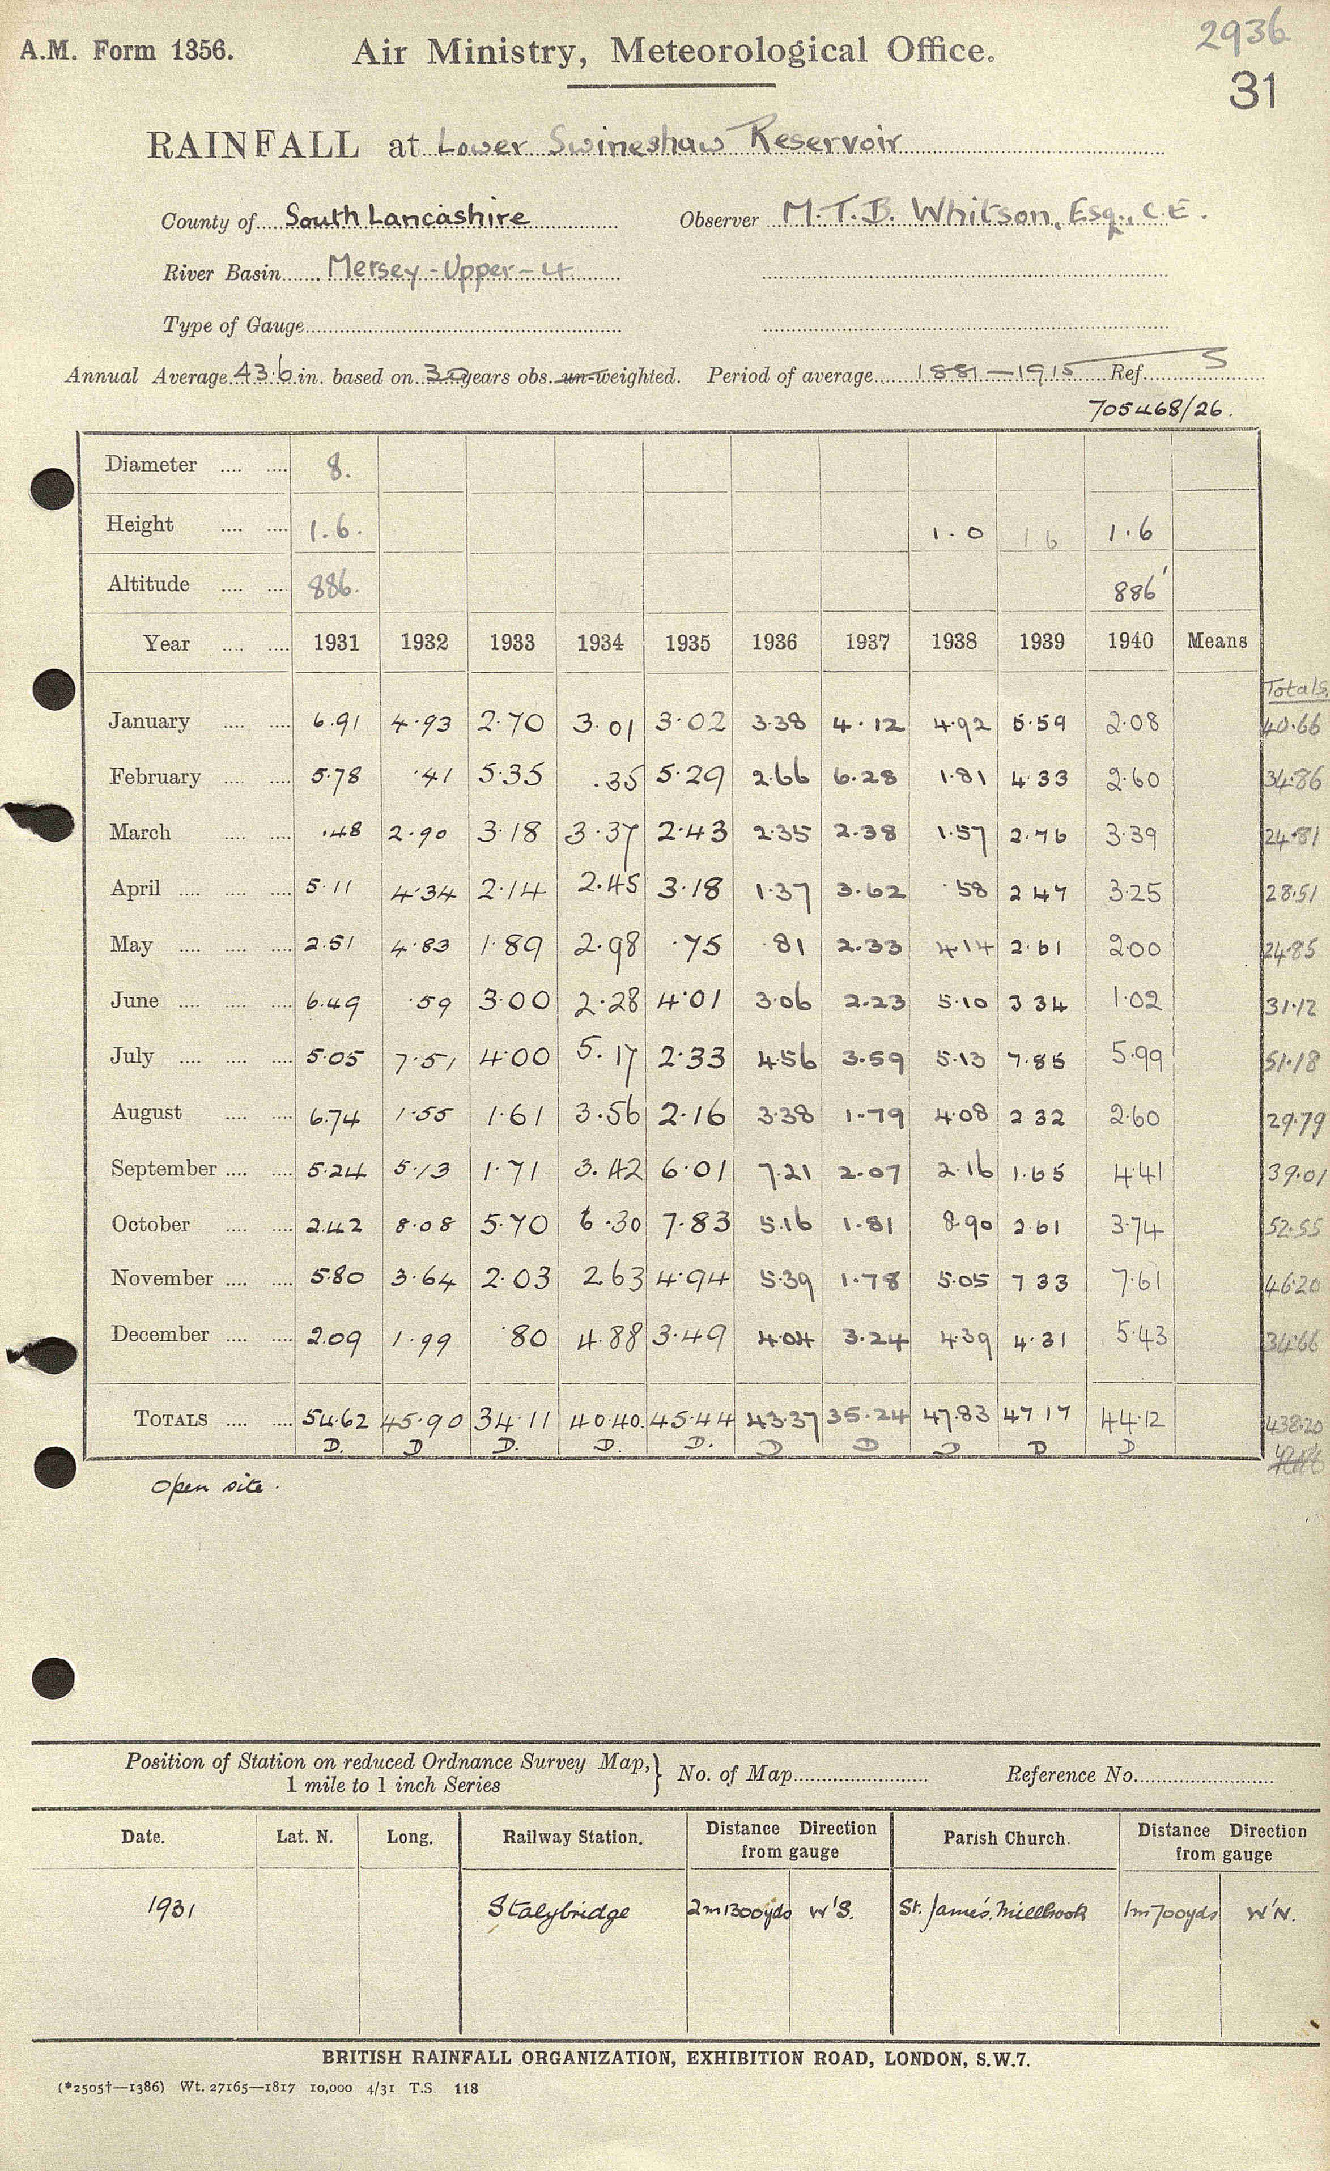 2936
A.M. Form 1356. Air Ministry, Meteorological Office.
31
RAINFALL at Lower Swineshaw Reservoir
County of South Lancashire Observer M.T.B. Whitson, Esq., C.E.
River Basin Mersey-Upper-4
Type of Gauge
Annual Average 43.6 in. based on years obs. un-weighted. Period of average 1881—1915 Ref. S
705468/26.
Diameter 8.
Height 1.6. 1.0 16 1.6
Altitude 886. 886'
Year 1931 1932 1933 1934 1935 1936 1937 1938 1939 1940 Means
Totals
January 6.91 4.93 2.70 3.01 3.02 3.38 4.12 4.92 5.59 2.08 40.66
February 5.78 .41 5.35 .35 5.29 2.66 6.28 1.81 4 33 2.60 34.86
March .48 2.90 3.18 3.37 2.43 2.35 2.38 1.57 2.76 3.39 24.81
April 5.11 4.34 2.14 2.45 3.18 1.37 3.62 .58 2 47 3.25 28.51
May 2.51 4.83 1.89 2.98 .75 .81 2.33 4.14 2.61 2.00 24.85
June 6.49 .59 3.00 2.28 4.01 3.06 2.23 5.10 3 34 1.02 31.12
July 5.05 7.51 4.00 5.17 2.33 4.56 3.59 5.13 7.85 5.99 51.18
August 6.74 1.55 1.61 3.56 2.16 3.38 1.79 4.08 2 32 2.60 29.79
September 5.24 5.13 1.71 3.42 6.01 7.21 2.07 2.16 1.65 4.41 39.01
October 2.42 8.08 5.70 6.30 7.83 5.16 1.81 8.90 2 61 3.74 52.55
November 5.80 3.64 2.03 2.63 4.94 5.39 1.78 5.05 7 33 7.61 46.20
December 2.09 1.99 .80 4.88 3.49 4.04 3.24 4.39 4.31 5.43 34.66
TOTALS 54.62 45.90 34.11 40.40 45.44 43.37 35.24 47.83 47 17 44.12 438.20
D. D D. D. D. D D D D D
Open site.
Position of Station on reduced Ordnance Survey Map, } No. of Map Reference No.
1 mile to 1 inch Series
Date. Lat. N. Long. Railway Station. Distance Direction from gauge Parish Church. Distance Direction from gauge
1931 Stalybridge 2m1300yds W'S. St. James'. Millbrook 1m700yds W'N.
BRITISH RAINFALL ORGANIZATION, EXHIBITION ROAD, LONDON, S.W.7.
(*2505†—1386) Wt. 27165—1817 10,000 4/31 T.S. 118